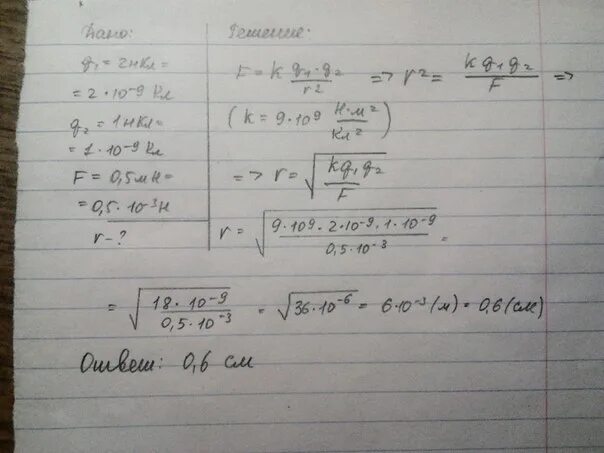 Дано:
q₁ = 2нКл =
= 2·10⁻⁹ Кл
q₂ = 1нКл =
= 1·10⁻⁹ Кл
F = 0,5мН =
= 0,5·10⁻³Н
r - ?
Решение:
F = k q₁·q₂ / r² => r² = k q₁q₂ / F =>
(k = 9·10⁹ Н·м² / Кл²)
=> r = √(kq₁q₂ / F)
r = √(9·10⁹·2·10⁻⁹·1·10⁻⁹ / 0,5·10⁻³) =
= √(18·10⁻⁹ / 0,5·10⁻³) = √36·10⁻⁶ = 6·10⁻³ (м) = 0,6 (см)
Ответ: 0,6 см